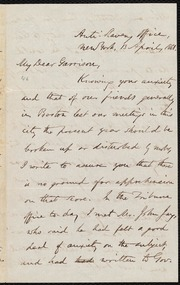 Anti-Slavery Office,
New York, 13 April, 1861.
My Dear Garrison,
Knowing your anxiety
and that of our friends generally
in Boston lest our meetings in
this city the present year should be
broken up or disturbed by mobs
I write to assure you that there
is no ground for apprehension
on that score. In the Tribune
office to-day I met Mr. John Jay,
who said he had felt a good
deal of anxiety on the subject
and had written to Gov.